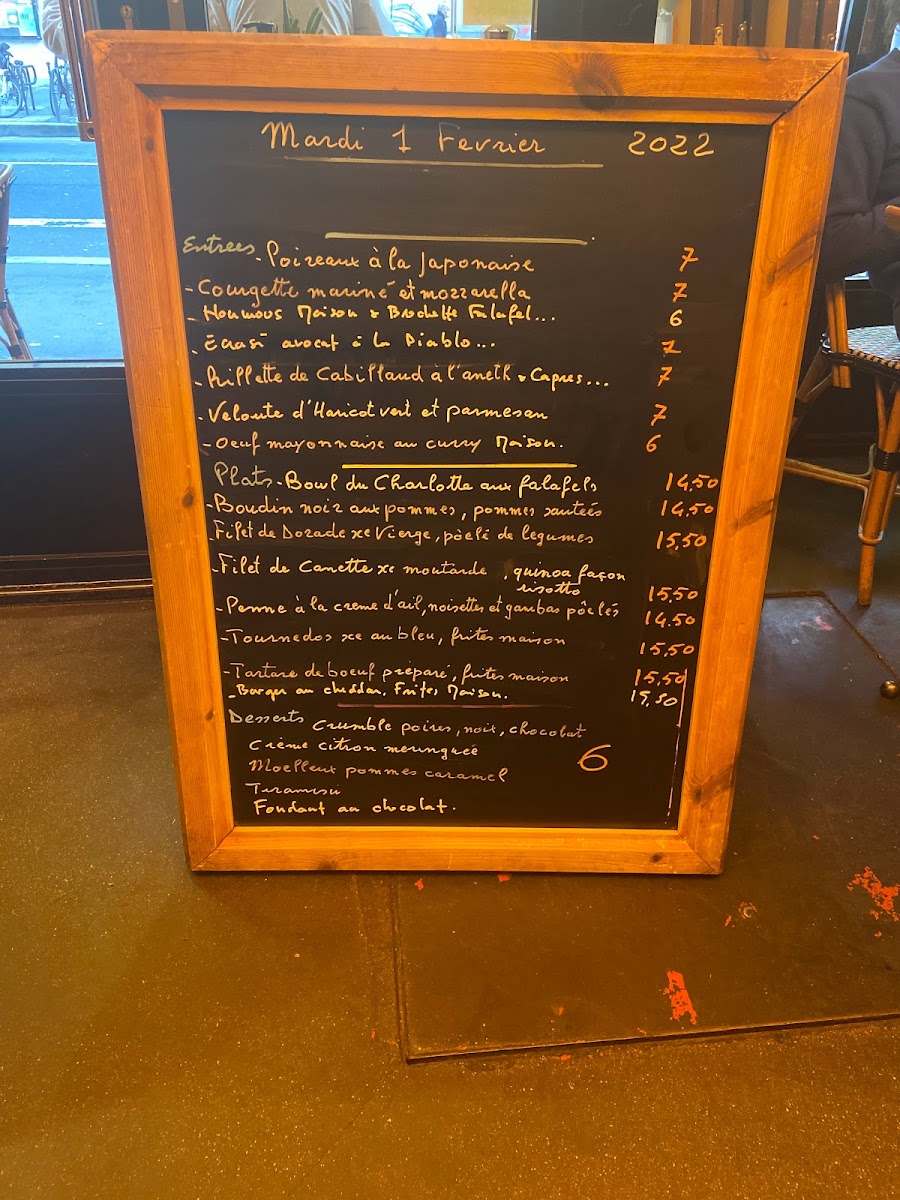 Mardi 1 Fevrier 2022
Entrees - Poireaux à la Japonaise 7
- Courgette mariné et mozzarella 7
- Houmous Maison & Brochette Falafel... 6
- Écrasé avocat à la Diablo... 7
- Rillette de Cabillaud à l'aneth & Capres... 7
- Veloute d'Haricot vert et parmesan 7
- Oeuf mayonnaise au curry Maison. 6
Plats - Bowl du Charlotte aux falafels 14,50
- Boudin noir aux pommes, pommes sautées 14,50
- Filet de Dorade sce Vierge, pôelé de legumes 15,50
- Filet de Canette sce moutarde, quinoa façon
risotto 15,50
- Penne à la creme d'ail, noisettes et gambas pôelés 14,50
- Tournedos sce au bleu, frites maison 15,50
- Tartare de boeuf préparé, frites maison 15,50
- Burger au cheddar. Frites Maison. 15,50
Desserts Crumble poires, noix, chocolat
Crème citron meringuée 6
Moelleux pommes caramel
Tiramisu
Fondant au chocolat.